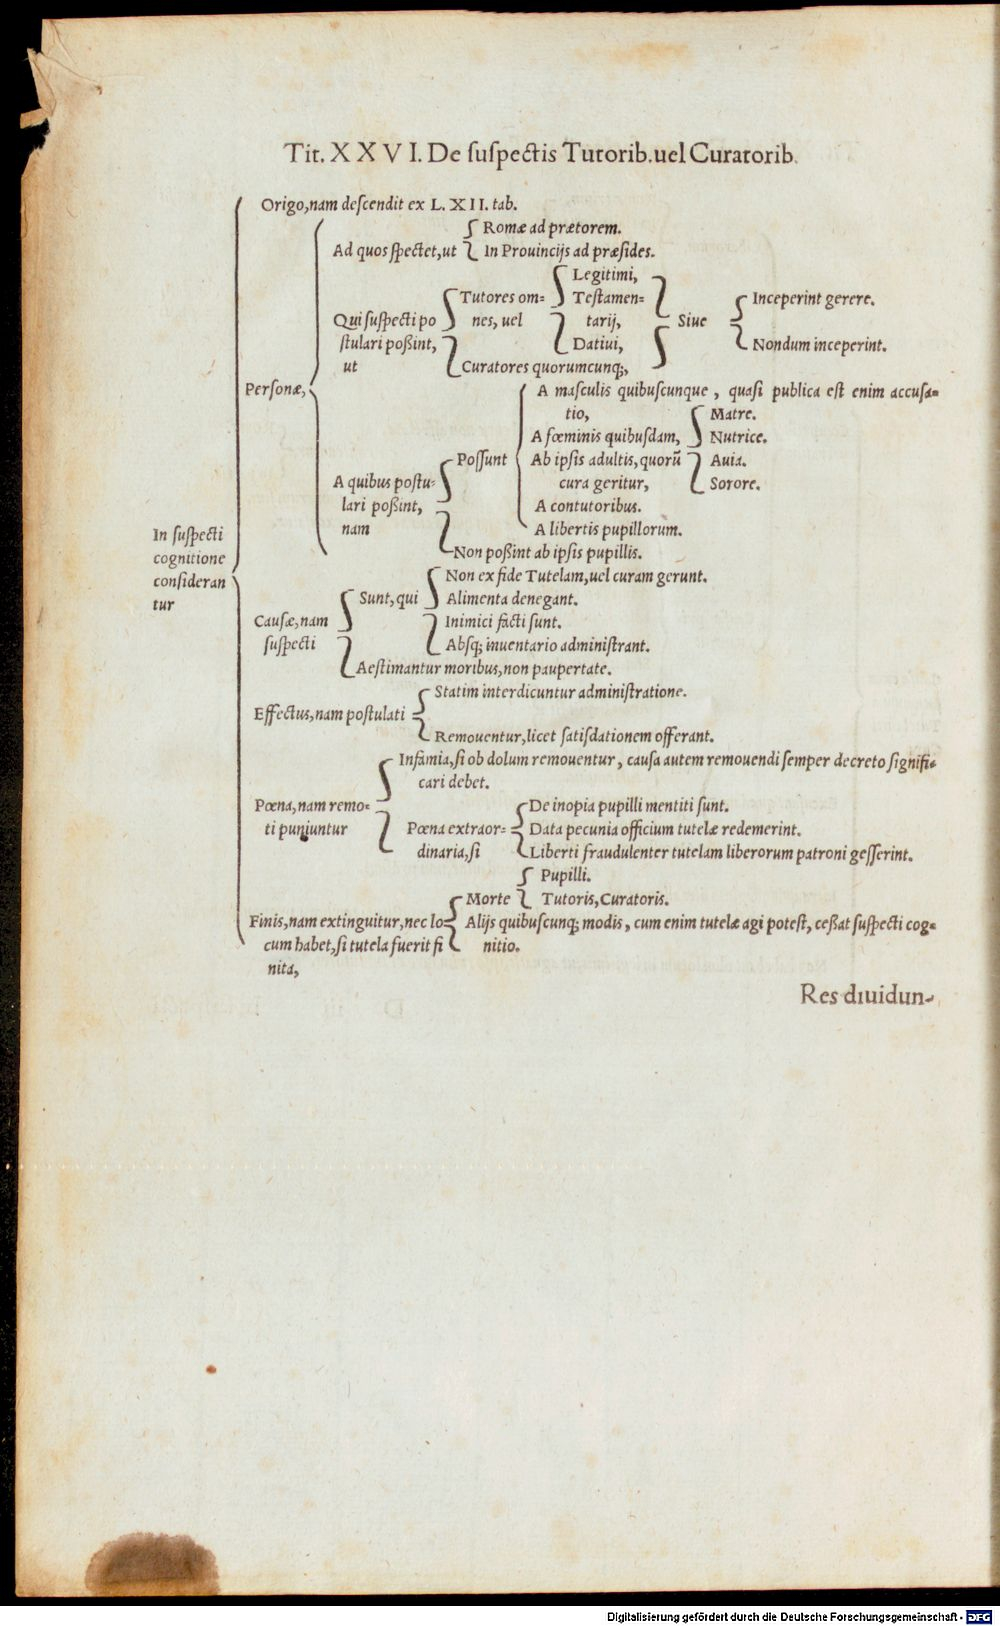 Tit. XXVI. De suspectis Tutorib. uel Curatorib.
Origo, nam descendit ex L. XII. tab.
Romæ ad prætorem.
Ad quos spectet, ut
In Prouincijs ad præsides.
Legitimi,
Tutores om-
Testamen-
Inceperint gerere.
Qui suspecti po
nes, uel
tarij,
Siue
stulari poßint,
Datiui,
Nondum inceperint.
ut
Curatores quorumcunq;,
Personæ,
A masculis quibuscunque, quasi publica est enim accusa-
tio,
Matre.
A fœminis quibusdam,
Nutrice.
Possunt
Ab ipsis adultis, quorũ
Auia.
A quibus postu-
cura geritur,
Sorore.
lari poßint,
A contutoribus.
nam
A libertis pupillorum.
In suspecti
Non poßint ab ipsis pupillis.
cognitione
consideran
tur
Non ex fide Tutelam, uel curam gerunt.
Sunt, qui
Alimenta denegant.
Causæ, nam
Inimici facti sunt.
suspecti
Absq; inuentario administrant.
Aestimantur moribus, non paupertate.
Statim interdicuntur administratione.
Effectus, nam postulati
Remouentur, licet satisdationem offerant.
Infamia, si ob dolum remouentur, causa autem remouendi semper decreto signifi-
cari debet.
Pœna, nam remo-
De inopia pupilli mentiti sunt.
ti puniuntur
Pœna extraor-
Data pecunia officium tutelæ redemerint.
dinaria, si
Liberti fraudulenter tutelam liberorum patroni gesserint.
Pupilli.
Morte
Tutoris, Curatoris.
Finis, nam extinguitur, nec lo-
Alijs quibuscunq; modis, cum enim tutelæ agi potest, ceßat suspecti cog-
cum habet, si tutela fuerit fi
nitio.
nita,
Res diuidun-
Digitalisierung gefördert durch die Deutsche Forschungsgemeinschaft - DFG